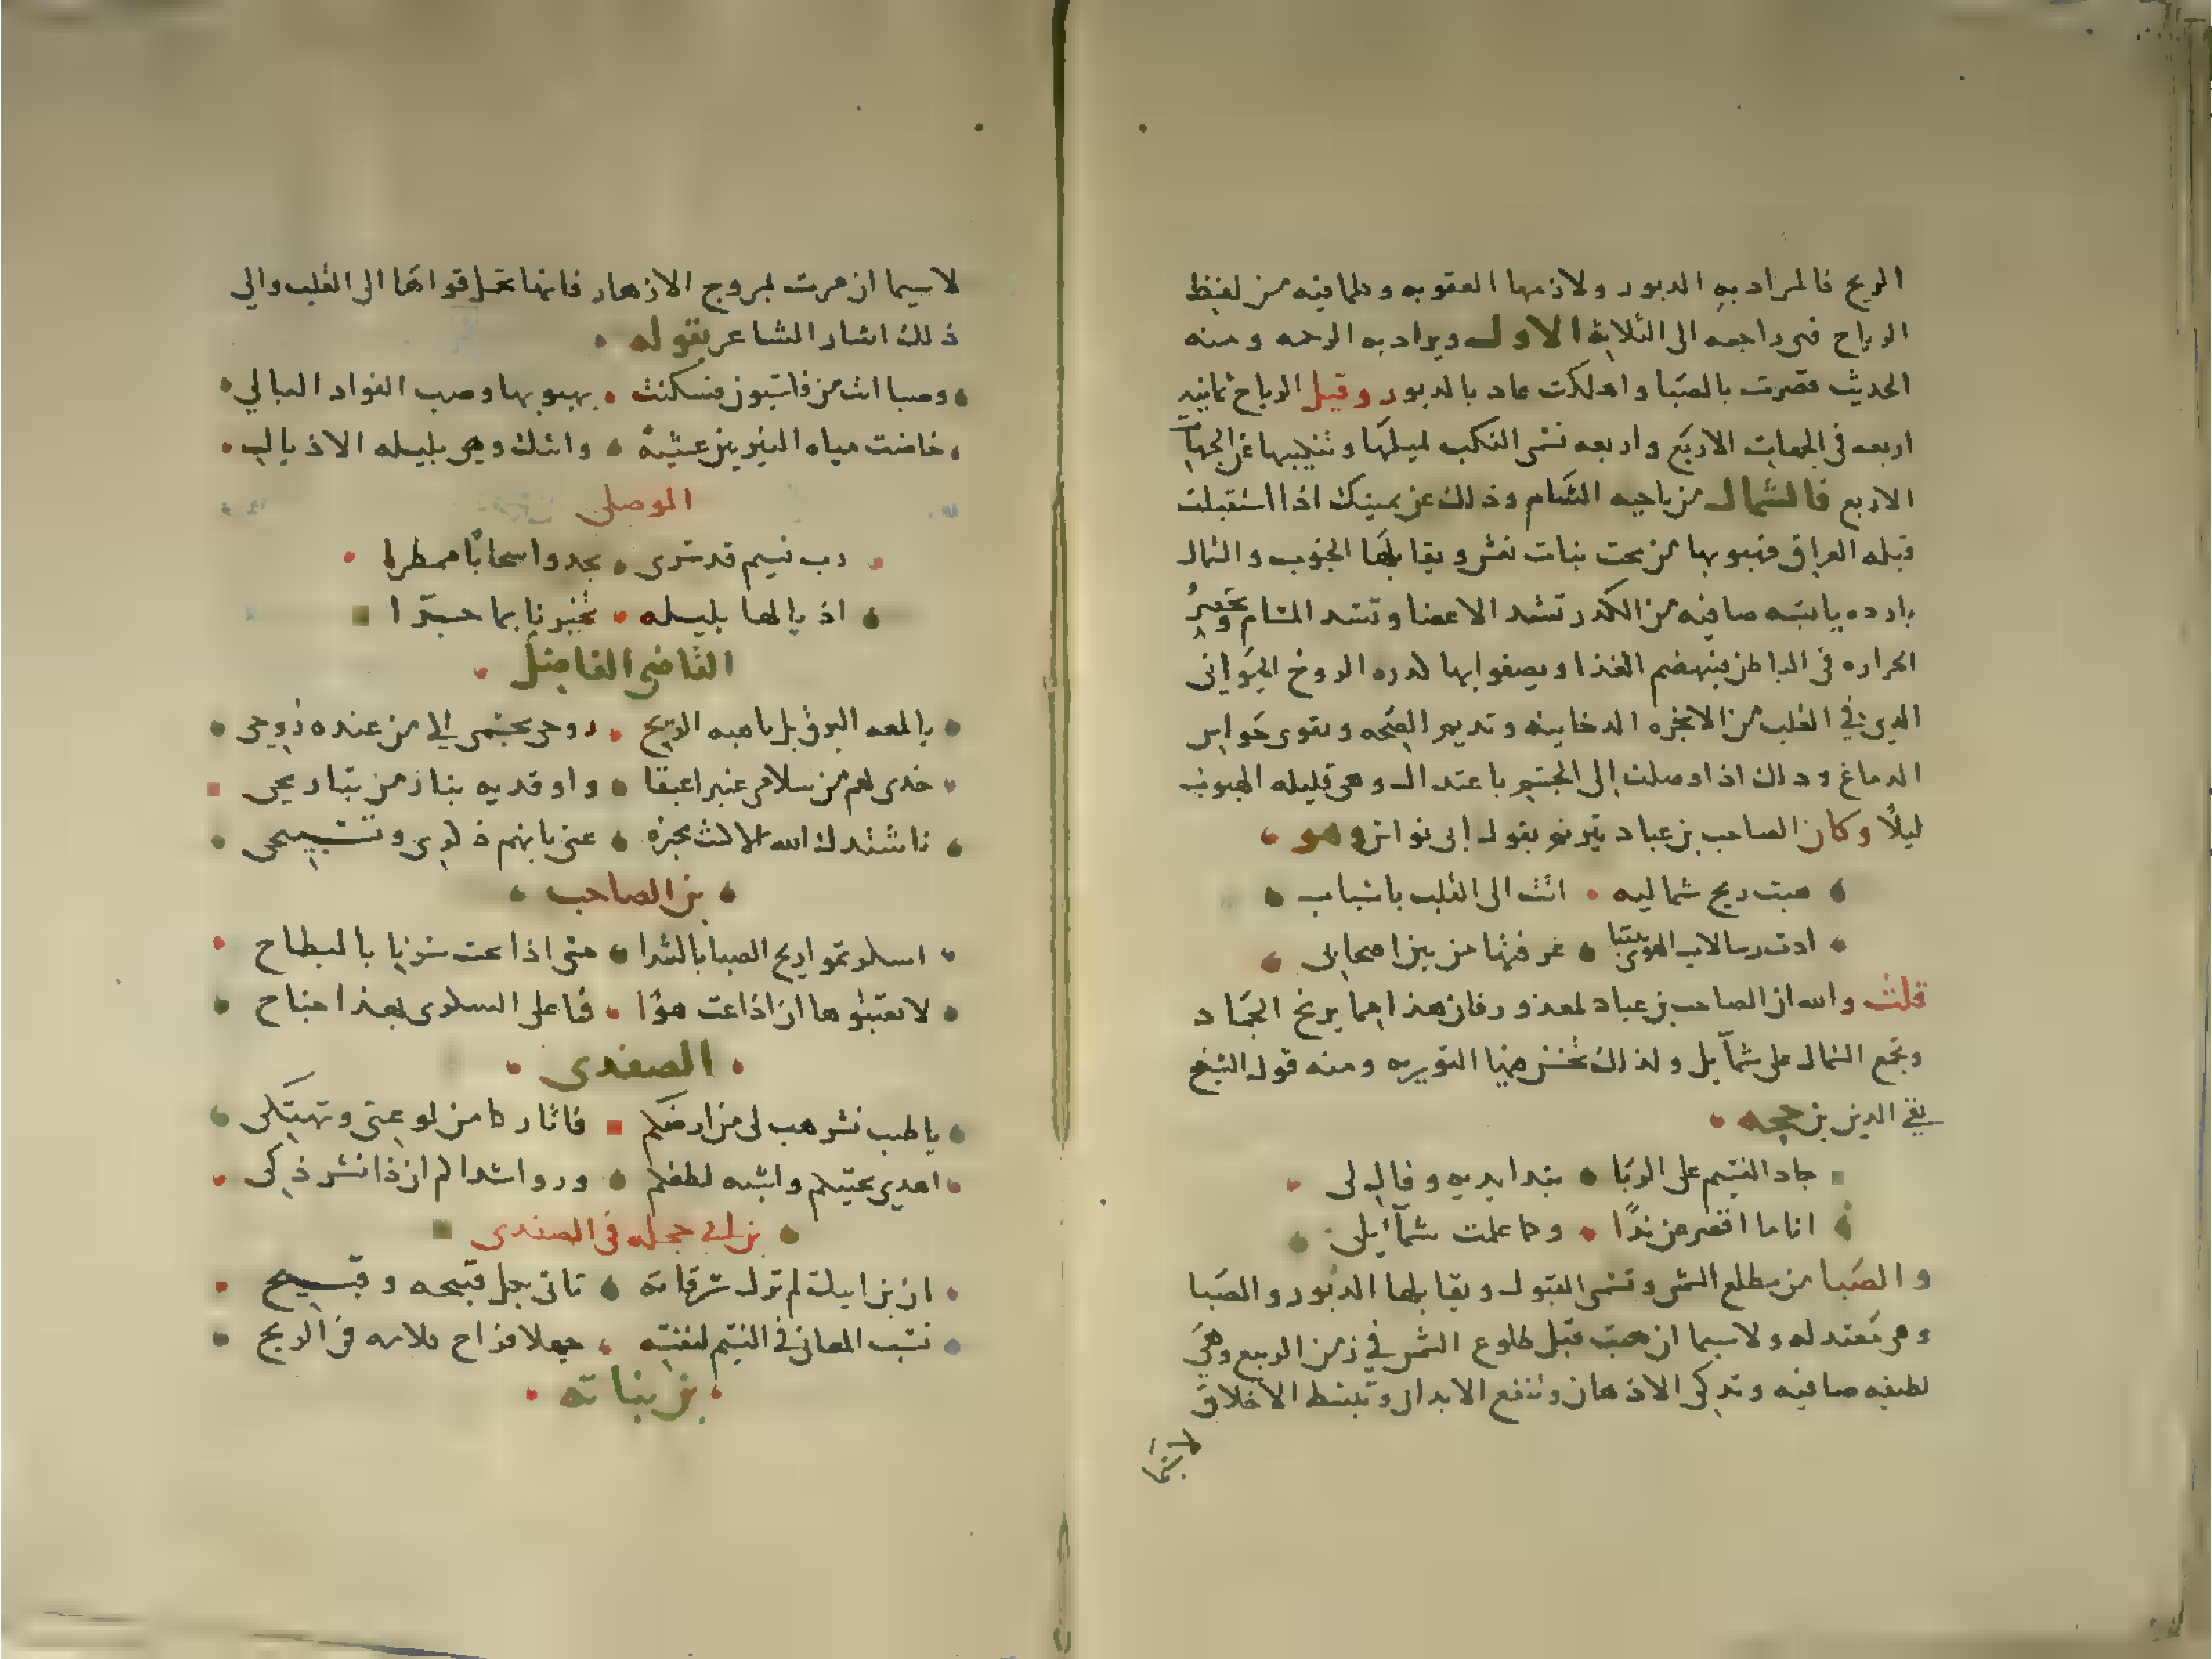 الريح فالمراد به الدبور ولازمها العقوبه وكلما فيه من لفظ
الرياح فهى راجعه الى الثلاثة الاول ويراد به الرحمه ومنه
الحديث نصرت بالصبا واهلكت عاد بالدبور وقيل الرياح ثمانيه
اربعه فى الجهات الاربع واربعه تسمى النكب لميلها وتنكبها عن الجهات
الاربع فالشمال من ناحيه الشام وذلك عن يمينك اذا استقبلت
قبله العراق فهبوبها من تحت بنات نعش ويقابلها الجنوب والشمال
بارده يابسه صافيه من الكدر تشد الاعضا وتسد المسام وتحصر
الحراره فى الباطن فينهضم الغذا ويصفوا بها لدره الروح الحيوانى
الدى فى القلب من الابخره الدخانيه وتديم الصحه وتقوى حواس
الدماغ ودلك اذا وصلت إلى الجسم باعتدال وهى قليله الهبوب
ليلًا وكان الصاحب بن عباد يترنم بقول ابى نواس وهو
هبت ريح شماليه اتت الى القلب باسباب
ادت رسالات الهوى بيننا عرفتها من بين اصحابى
قلت والله ان الصاحب بن عباد لمعذور فان هذا مما يرنح الجماد
وتجمع الشمال على شمآيل ولذلك تحسن فيها التوريه ومنه قول الشيخ
تقى الدين بن حجه
جاد النسيم على الربا بندا يديه وقال لى
انا ما اقصر عن ندًا وكما علمت شمآئلى
والصَبا من مطلع الشمس وتسمى القبول ويقابلها الدبور والصَبا
وهى معتدله ولاسيما ان هبت قبل طلوع الشمس فى زمن الربيع وهى
لطيفه صافيه وتدكى الاذهان وتنفع الابدان وتبسط الاخلاق
لاسيما
لاسيما ان مرت بمروج الازهار فانها تحمل قواها الى القلب والى
ذلك اشار الشاعر بقوله
وصبا اتت من قاسيون فسكنت بهبوبها وصب الفواد البالي
خاضت مياه النيربين عشية واتتك وهى بليله الاذيال
الموصلى
رب نسيم قد سرى يحدوا سحابًا ممطرا
اذيالها بليله تخبرنا بما جرا
القاضى الفاضل
يا لمعه البرق بل يا هبه الريح روحى بجسمى الى من عنده روحى
خدى لهم من سلامى عنبرا عبقا واوقديه بنار من تباريحى
ناشتدك الله الا كنت مخبره عنى بانهم ذكرى وتسبيحى
بن الصاحب
اسلو نمو اريج الصبا بالشدا متى اذاعت سرنا بالبطاح
لا تعتبوها ان اذاعت هوًا فما على السلوى بهذا جناح
الصفدى
يا طيب نشر هب لى من ارضكم فاثار كامن لوعتى وتهتكى
اهدى تحيتكم واشبه لطفكم وروا شداكم ان ذا نشر ذكى
بن ابى حجله فى الصفدى
ان بن ايبك لم تزل سرقاته تاتى بكل قبيحه وقبيح
نسب المعانى فى النسيم لنفسه جهلا فراح كلامه فى الريح
بن نباته